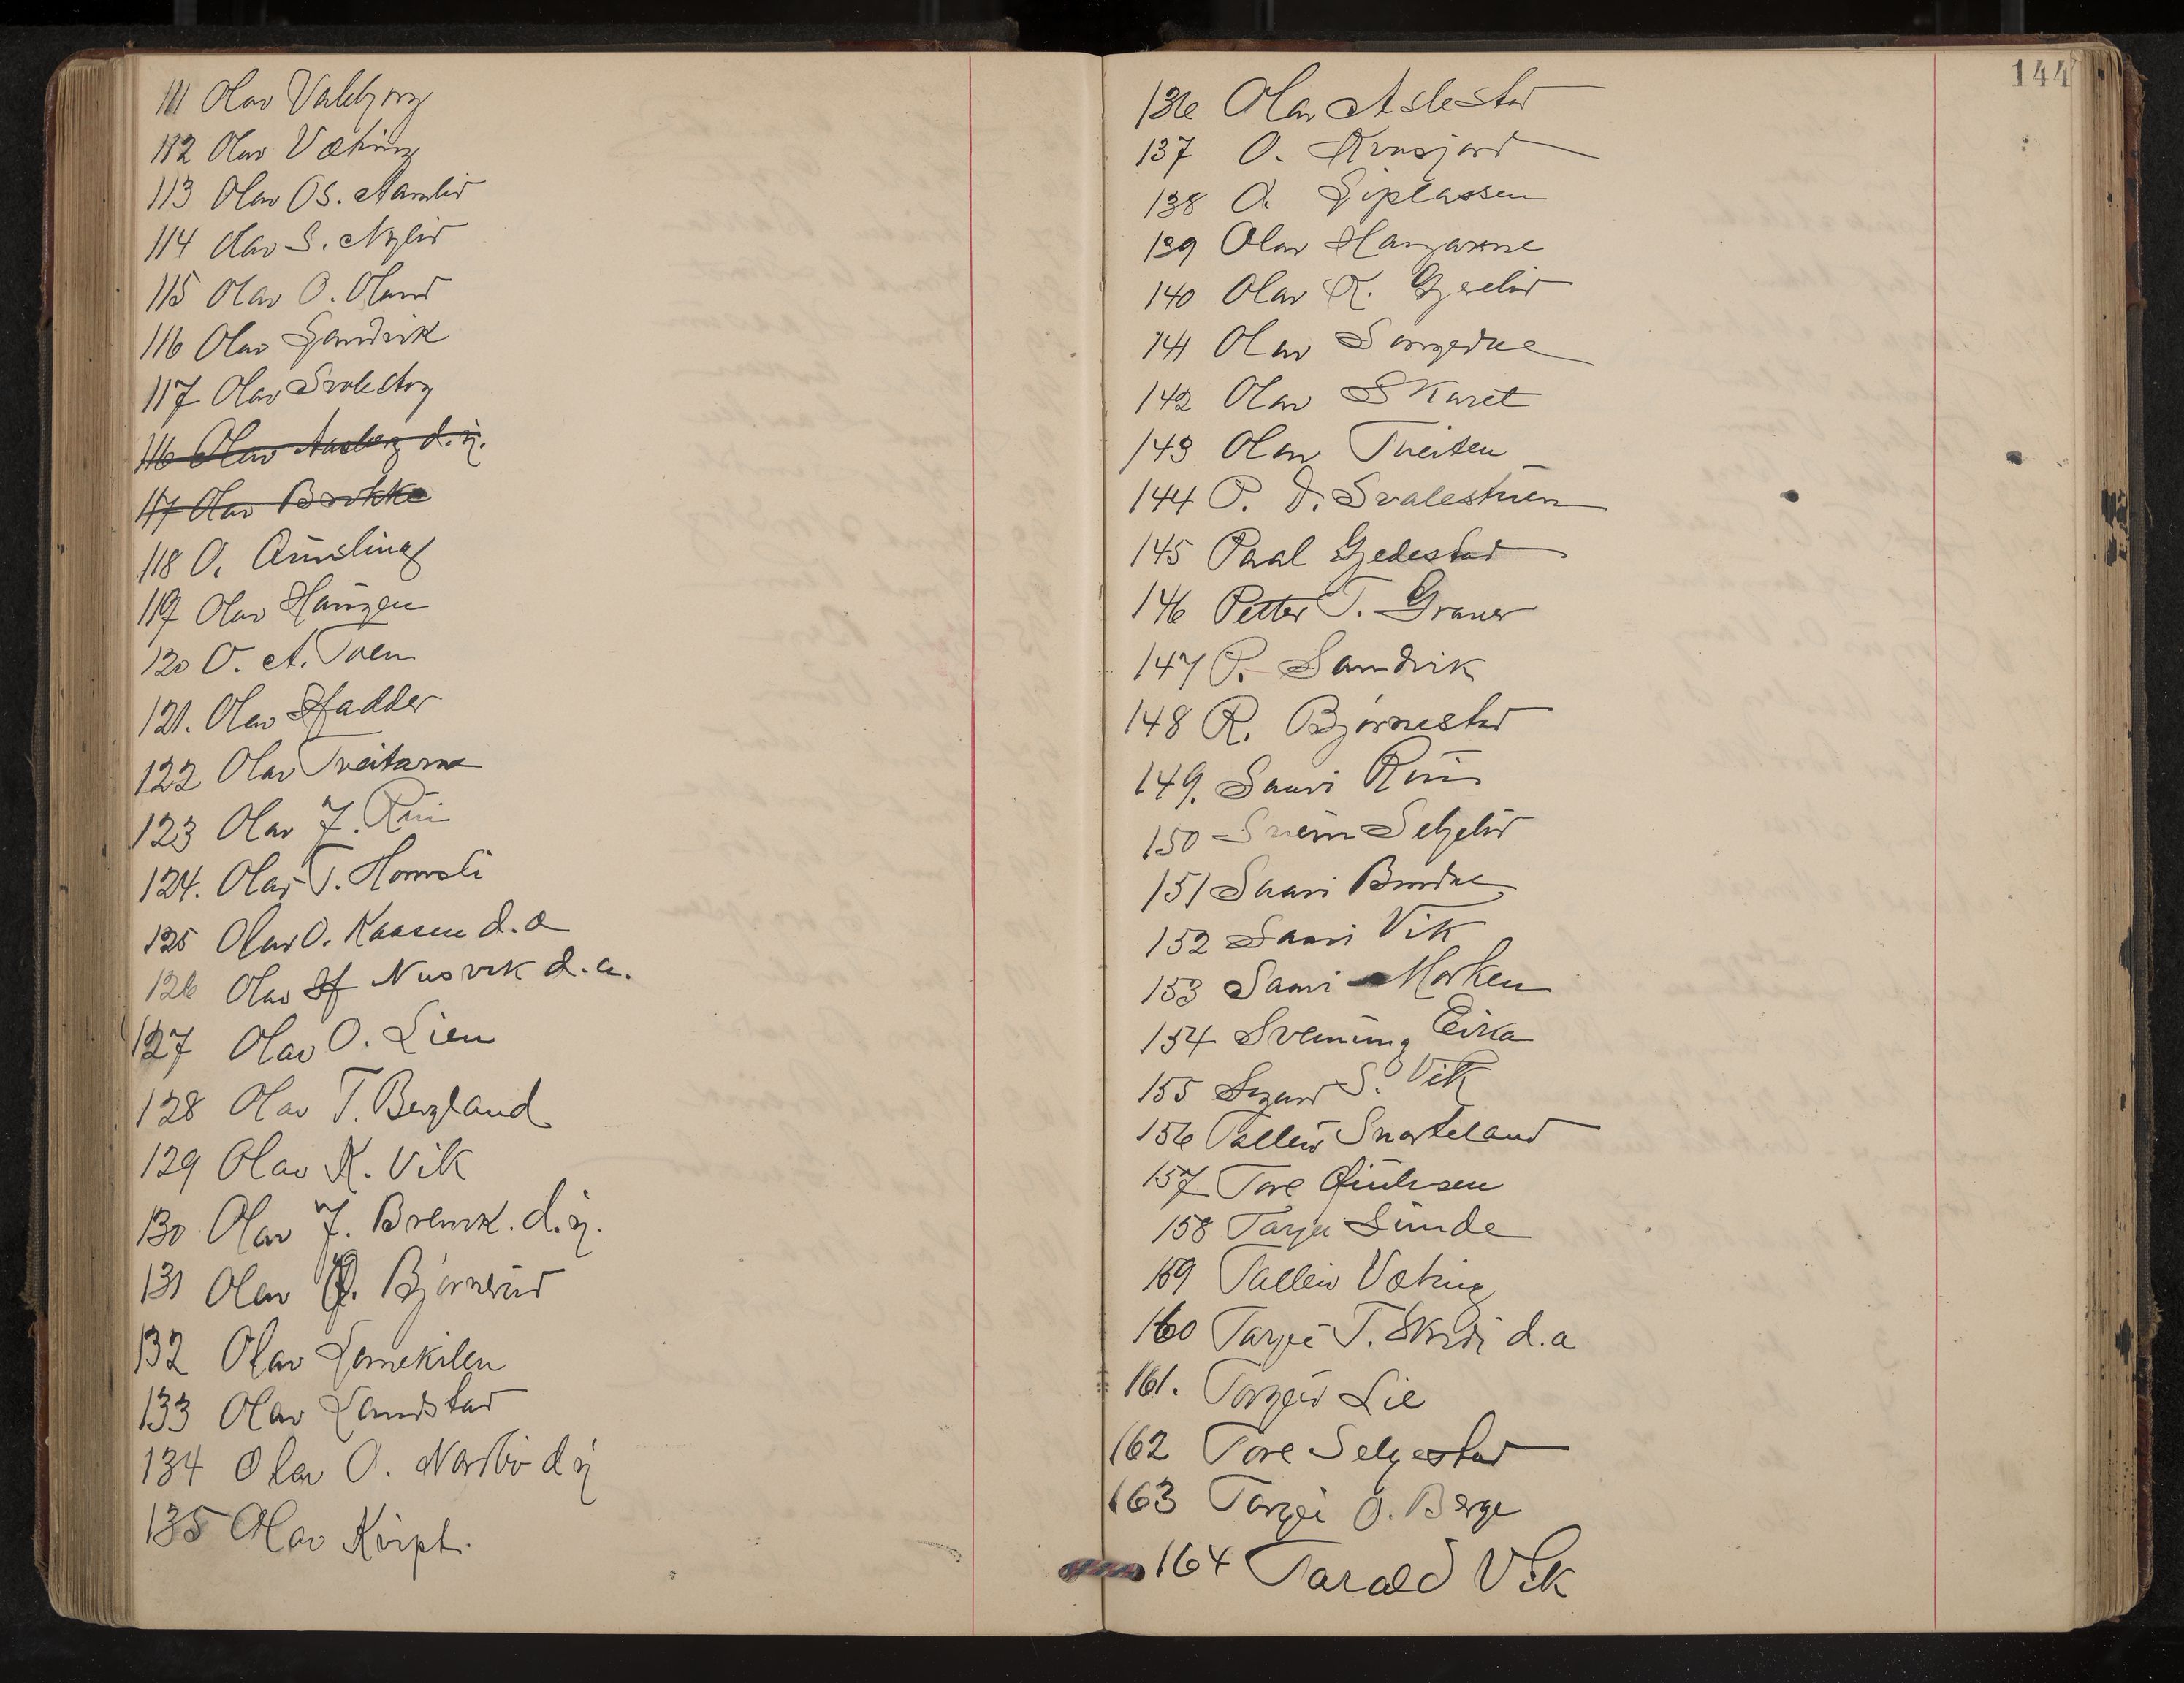 111 Olav Valbjorg
112 Olav Vehüs
113 Olav Os. Aamlid
114 Olav S. Nylid
115 Olav O. Oland
116 Olav Sandvik
117 Olav
116 Olav Aasberg d.y.
117 Olav Brokke
118 O. Omsling
119 Olav Haugen
120 O. A. Toen
121. Olav Hadder
122 Olav Treitane
123 Olav J. Rui
124. Olav T. Homsli
125 Olav O. Kaasen d.æ
126 Olav H Nesvik d.æ.
127 Olav O. Lien
128 Olav T. Bergland
129 Olav K. Vik
130 Olav J. Brenik. d.y.
131 Olav Bjørnerud
132 Olav Lomekilen
133 Olav Landstad
134 Olav O. Nordbö d y
135 Olav Kvipt.
144
136 Olav Aslestad
137 O.
138 O. Liplassen
139 Olav Haugane
140 Olav K. Gjerelid
141 Olav
142 Olav Skaret
143 Olav Tveiten
144 P. D. Svalestuen
145 Paal Gjedestad
146 Petter T. Graver
147 P. Sandvik
148 R. Bjørnestad
149. Saavi Rui
150 Svein Seljelid
151 Saavi
152 Saavi Vik
153 Saavi Morken
154 Sveinung Eika
155 Sigurd S. Vik
156 Talleiv Snarteland
157 Tore
158 Tarjei Sunde
159 Talleiv Væting
160 Tarjei T. Skrdi d.a
161. Torgeir Lie
162 Tore Seljestad
163 Torgei O. Berge
164 Tarald Vik